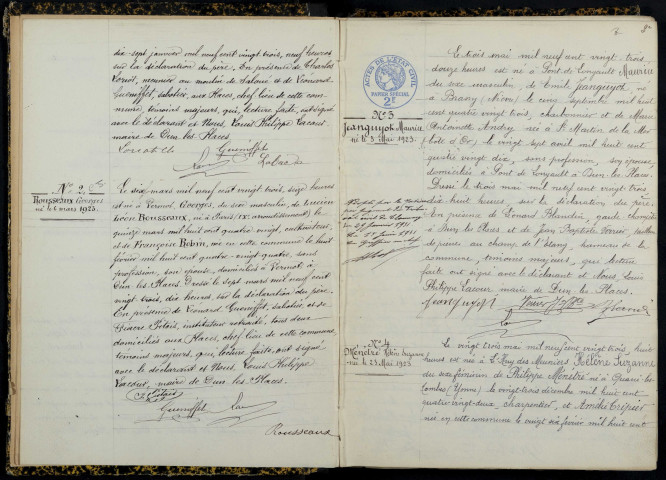 dix-sept janvier mil neuf cent vingt trois, neuf heures
sur la déclaration du père. En présence de Charles
meunier au moulin de et de Léonard
Gueniffet, sabotier, aux Places, chef lieu de cette com-
mune, témoins majeurs, qui, lecture faite, ont signé
avec le déclarant et Nous, Louis Philippe Lacour
maire de Dun les Places.
Gueniffet
N° 2
Rousseaux Georges
né le 6 mars 1923.
Le six mars mil neuf cent vingt trois, seize heures
est né à Vermot, Georges, du sexe masculin, de Lucien
Léon Rousseaux, né à Paris (IX arrondissement) le
quinze mars mil huit cent quatre-vingt,
et de Françoise Robin, née en cette commune le huit
février mil huit cent quatre-vingt-quatre, sans
profession, son épouse, domiciliés à Vermot à
Dun les Places. Dressé le sept mars mil neuf cent
vingt trois, dix heures, sur la déclaration du père.
En présence de Léonard Gueniffet, sabotier, et de
instituteur retraité, tous deux
domiciliés aux Places, chef lieu de cette commune
témoins majeurs, qui, lecture faite, ont signé
avec le déclarant et Nous, Louis Philippe
Lacour, maire de Dun les Places.
Gueniffet
Rousseaux
8
ACTES DE L'ETAT CIVIL
PAPIER SPECIAL
2F
N° 3
Jeanguyot Maurice
né le 3 Mai 1923.
Le trois mai mil neuf cent vingt trois,
douze heures est né à Pont de Maurice
du sexe masculin, de Emile Jeanguyot, né
à Brassy (Nièvre) le cinq septembre mil huit
cent quatre vingt trois, charbonnier et de Marie
Antoinette Andry née à St Martin de la Mer
(Côte d'Or), le vingt sept avril mil huit cent
quatre vingt dix, sans profession, son épouse
domiciliés à Pont de à Dun les Places.
Dressé le trois mai mil neuf cent vingt trois
dix huit heures, sur la déclaration du père.
En présence de Léonard garde champêtre
à Dun les Places et de Jean Baptiste
de pierres au champ de l'étang, hameau de la
commune, témoins majeurs, qui lecture
faite ont signé avec le déclarant et Nous, Louis
Philippe Lacour maire de Dun les Places.
Jeanguyot
N° 4
Ménétré Hélène Suzanne
née le 23 Mai 1923
Le vingt trois mai mil neuf cent vingt trois, huit
heures est née à Hélène Suzanne
du sexe féminin de Philippe Ménétré né à Quarré-les-
Tombes (Yonne) le vingt-trois décembre mil huit cent
quatre vingt-deux, charpentier, et Amélie
née en cette commune le vingt six février mil huit cent